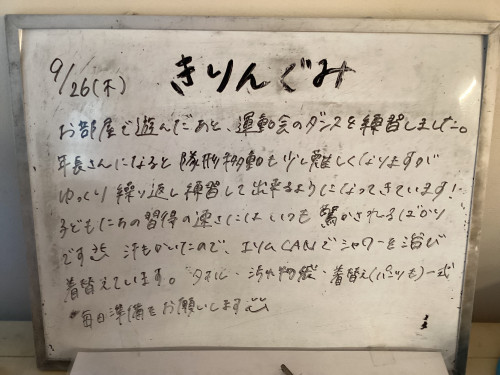 9/26(木) きりんぐみ
お部屋で遊んだあと、運動会のダンスを練習しました。
年長さんになると隊形移動も少し難しくなりますが
ゆっくり繰り返し練習して出来るようになってきています!
子どもたちの習得の速さにはいつも驚かされるばかり
です 汗もかいたので、CANでシャワーを浴び
着替えています。タオル・汚れ物袋・着替え(パンツも)一式
毎日準備をお願いします